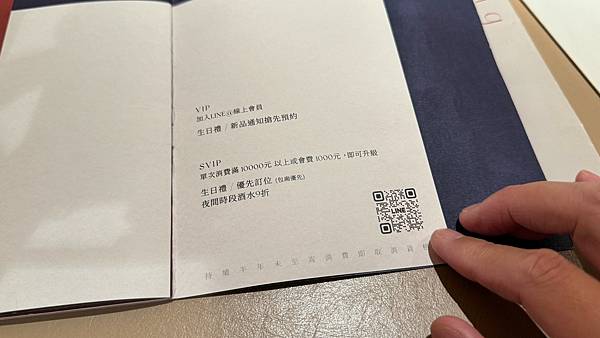 VIP
加入LINE@線上會員
生日禮 / 新品通知搶先預約
SVIP
單次消費滿 10000元 以上或會費 1000元，即可升級
生日禮 / 優先訂位 (包廂優先)
夜間時段酒水9折
LINE
持續半年未至高消費即取消資格